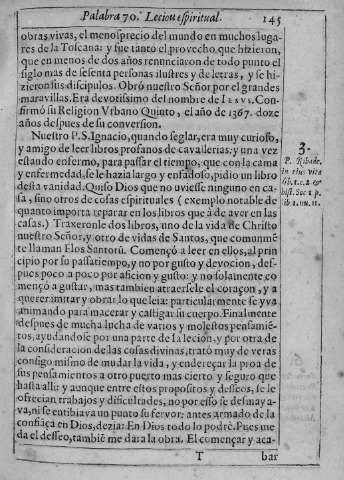 Palabra 70. Lecion espiritual. 145
obras vivas, el menosprecio del mundo en muchos luga-
res de la Toscana: y fue tanto el provecho, que hizieron,
que en menos de dos años renunciaron de todo punto el
siglo mas de sesenta personas ilustres y de letras, y se hi-
zieron sus discipulos. Obró nuestro Señor por el grandes
maravillas. Era devotissimo del nombre de IESVS. Con-
firmó su Religion Vrbano Quinto, el año de 1367. doze
años despues de su conversion.
Nuestro P. S. Ignacio, quando seglar, era muy curioso,
y amigo de leer libros profanos de cavallerias: y una vez
estando enfermo, para passar el tiempo, que con la cama
y enfermedad, se le hazia largo y enfadoso, pidio un libro
desta vanidad. Quiso Dios que no uviesse ninguno en ca-
sa, sino otros de cosas espirituales (exemplo notable de
quanto importa reparar en los libros que à de aver en las
casas.) Traxeronle dos libros, uno de la vida de Christo
nuestro Señor, y otro de vidas de Santos, que comunmẽ
te llaman Flos Santorũ. Començó a leer en ellos, al prin
cipio por su passatiempo, y no por gusto y devocion, des-
pues poco a poco por aficion y gusto: y no solamente co
mençó a gustar, mas tambien atraersele el coraçon, y a
querer imitar y obrar lo que leia: particularmente se yva
animando para macerar y castigar su cuerpo. Finalmente
despues de mucha lucha de varios y molestos pensamiẽ-
tos, ayudandose por una parte de la lecion, y por otra de
la consideracion de las cosas divinas, trató muy de veras
consigo mismo de mudar la vida, y endereçar la proa de
sus pensamientos a otro puerto mas cierto y seguro que
hasta alli: y aunque entre estos propositos y desseos, se le
ofrecian trabajos y dificultades, no por esso se desmaya-
va, ni se entibiava un punto su fervor: antes armado de la
confiãça en Dios, dezia: En Dios todo lo podrè. Pues me
da el desseo, tambiẽ me dara la obra. El començar y aca-
T bar
3.
P. Ribade.
in eius vita
lib. 1. c. 2. &
hist. Soc 1 p.
lib 1. nu. 11.